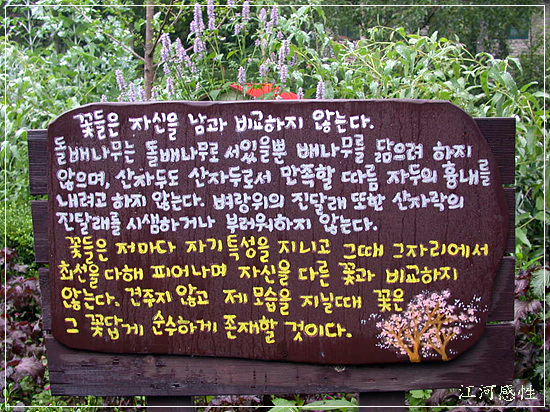 꽃들은 자신을 남과 비교하지 않는다.
돌배나무는 돌배나무로 서있을뿐 배나무를 닮으려 하지
않으며, 산자두도 산자두로서 만족할 따름 자두의 흉내를
내려고 하지 않는다. 벼랑위의 진달래 또한 산자락의
진달래를 시샘하거나 부러워하지 않는다.
꽃들은 저마다 자기 특성을 지니고 그때 그자리에서
최선을 다해 피어나며 자신을 다른 꽃과 비교하지
않는다. 견주지 않고 제 모습을 지닐때 꽃은
그 꽃답게 순수하게 존재할 것이다.
江河感性